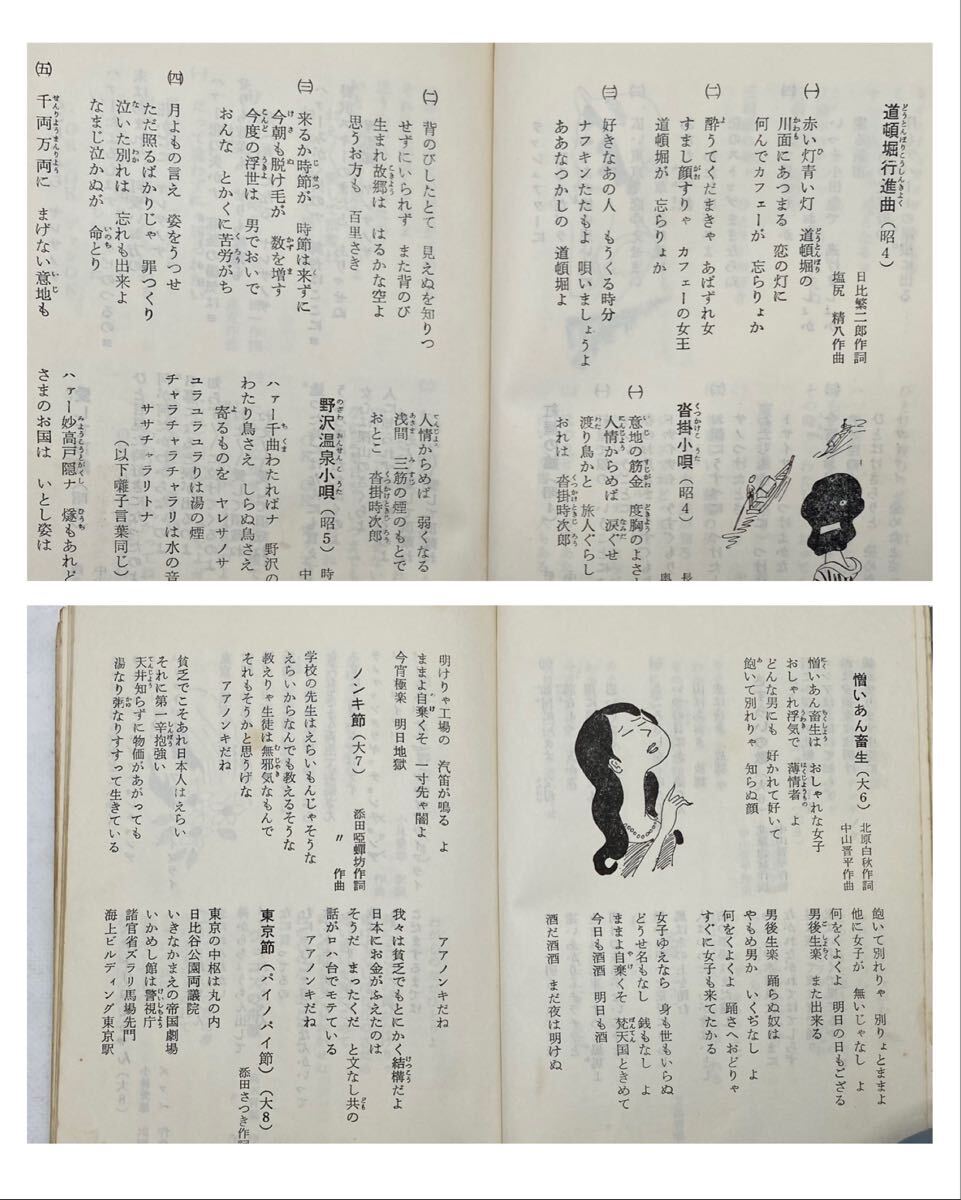 道頓堀行進曲（昭4）
日比繁二郎作詞
塩尻　精八作曲
㈠　赤い灯青い灯　道頓堀の
川面にあつまる　恋の灯に
何んでカフェーが　忘らりょか
㈡　酔うてくだまきゃ　あばずれ女
すまし顔すりゃ　カフェーの女王
道頓堀が　忘らりょか
㈢　好きなあの人　もうくる時分
ナフキンたたもよ　唄いましょうよ
ああなつかしの　道頓堀よ
沓掛小唄（昭4）
長
奥
㈠　意地の筋金　度胸のよさ
人情からめば　涙ぐせ
渡り鳥かと　旅人ぐらし
おれは　沓掛時次郎
㈡　背のびしたとて　見えぬを知りつ
せずにいられず　また背のび
生まれ故郷は　はるかな空よ
思うお方も　百里さき
㈢　来るか時節が　時節は来ずに
今朝も脱け毛が　数を増す
今度の浮世は　男でおいで
おんな　とかくに苦労がち
㈣　月よもの言え　姿をうつせ
ただ照るばかりじゃ　罪つくり
泣いた別れは　忘れも出来よ
なまじ泣かぬが　命とり
㈤　千両万両に　まげない意地も
人情からめば　弱くなる
浅間　三筋の煙のもとで
おとこ　沓掛時次郎
野沢温泉小唄（昭5）
時
中
ハァー千曲わたればナ　野沢の
わたり鳥さえ　しらぬ鳥さえ
寄るものを　ヤレサノサ
ユラユラユラリは湯の煙
チャラチャラチャラリは水の音
ササチャラリトナ
（以下囃子言葉同じ）
ハァー妙高戸隠ナ　燧もあれど
さまのお国は　いとし姿は
憎いあん畜生（大6）
北原白秋作詞
中山晋平作曲
憎いあん畜生は　おしゃれな女子
おしゃれ浮気で　薄情者　よ
どんな男にも　好かれて好いて
飽いて別れりゃ　知らぬ顔
飽いて別れりゃ　別りょとままよ
他に女子が　無いじゃなし　よ
何をくよくよ　明日の日もござる
男後生楽　また出来る
男後生楽　踊らぬ奴は
やもめ男か　いくぢなし　よ
何をくよくよ　踊さへおどりゃ
すぐに女子も来てたかる
女子ゆえなら　身も世もいらぬ
どうせ名もなし　銭もなし　よ
ままよ自棄くそ　梵天国ときめて
今日も酒酒　明日も酒
酒だ酒酒　まだ夜は明けぬ
明けりゃ工場の　汽笛が鳴る　よ
ままよ自棄くそ　一寸先ゃ闇よ
今宵極楽　明日地獄
ノンキ節（大7）
添田啞蟬坊作詞
〃　作曲
学校の先生はえらいもんじゃそうな
えらいからなんでも教えるそうな
教えりゃ生徒は無邪気なもんで
それもそうかと思うげな
アアノンキだね
貧乏でこそあれ日本人はえらい
それに第一辛抱強い
天井知らずに物価があがっても
湯なり粥なりすすって生きている
アアノンキだね
我々は貧乏でもとにかく結構だよ
日本にお金がふえたのは
そうだ　まったくだ　と文なし共の
話がロハ台でモテている
アアノンキだね
東京節（パイノパイ節）（大8）
添田さつき作詞
東京の中枢は丸の内
日比谷公園両議院
いきなかまえの帝国劇場
いかめし館は警視庁
諸官省ズラリ馬場先門
海上ビルディング東京駅